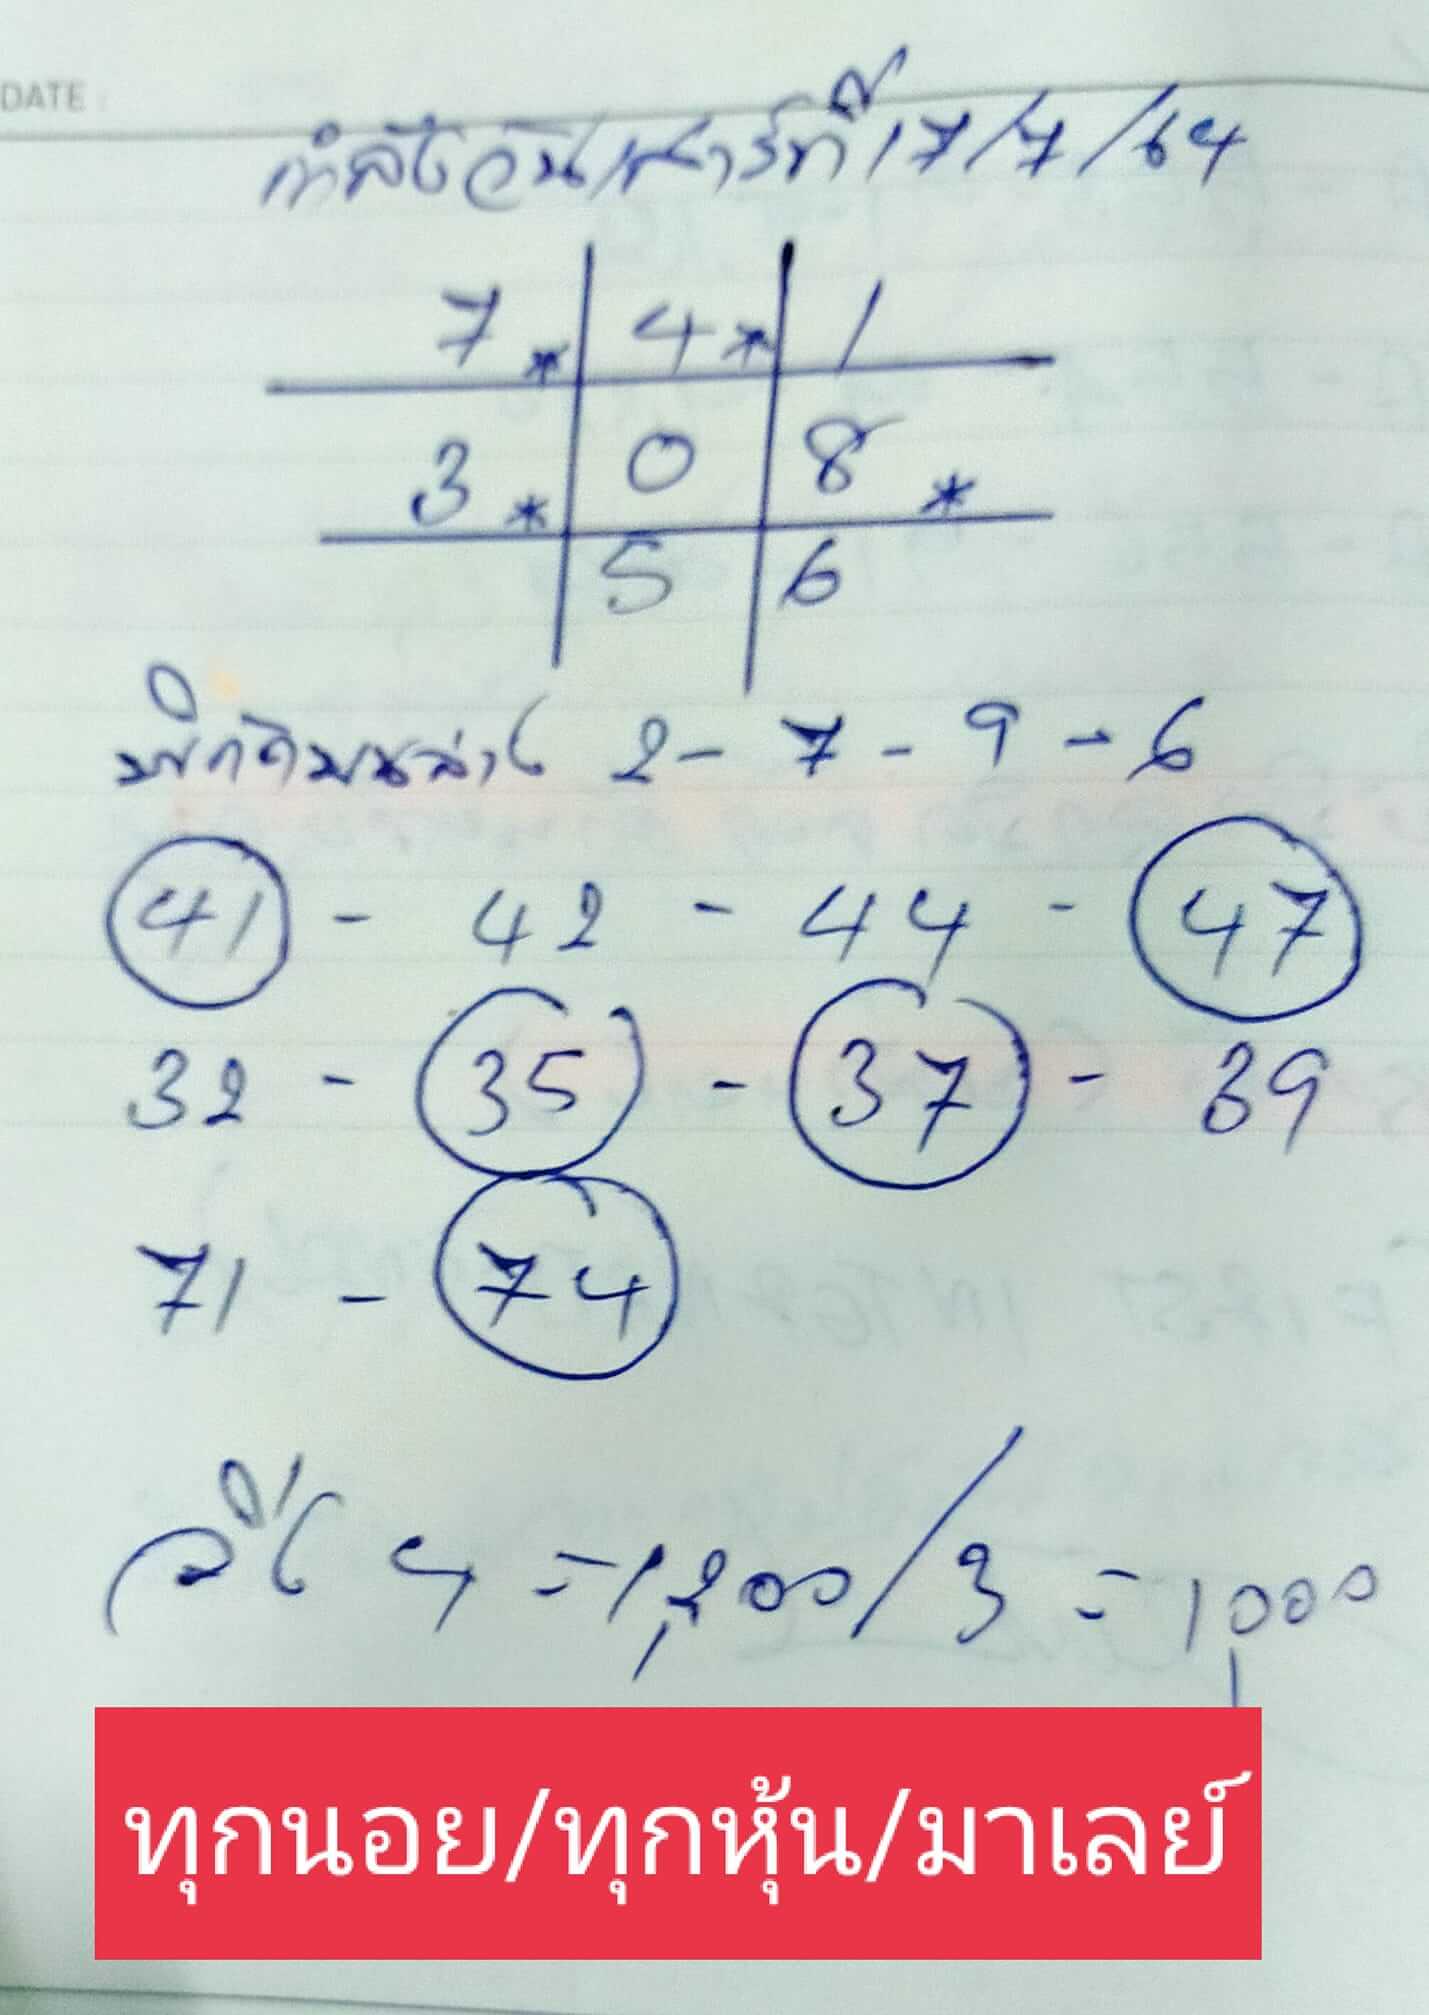 DATE :
กำลังวันเสาร์ที่ 17/7/64
7* 4* 1
3* 0 8*
5 6
พิกัดบนล่าง 2 - 7 - 9 - 6
41 - 42 - 44 - 47
32 - 35 - 37 - 39
71 - 74
วิ่ง 4 = 1,200 / 3 = 1,000
ทุกนอย/ทุกหุ้น/มาเลย์